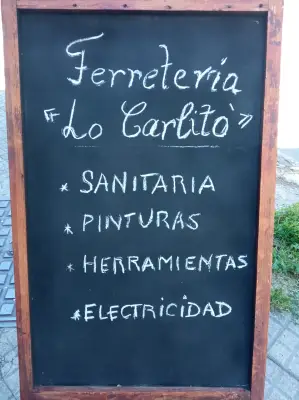 Ferretería
"Lo Carlito"
* SANITARIA
* PINTURAS
* HERRAMIENTAS
* ELECTRICIDAD